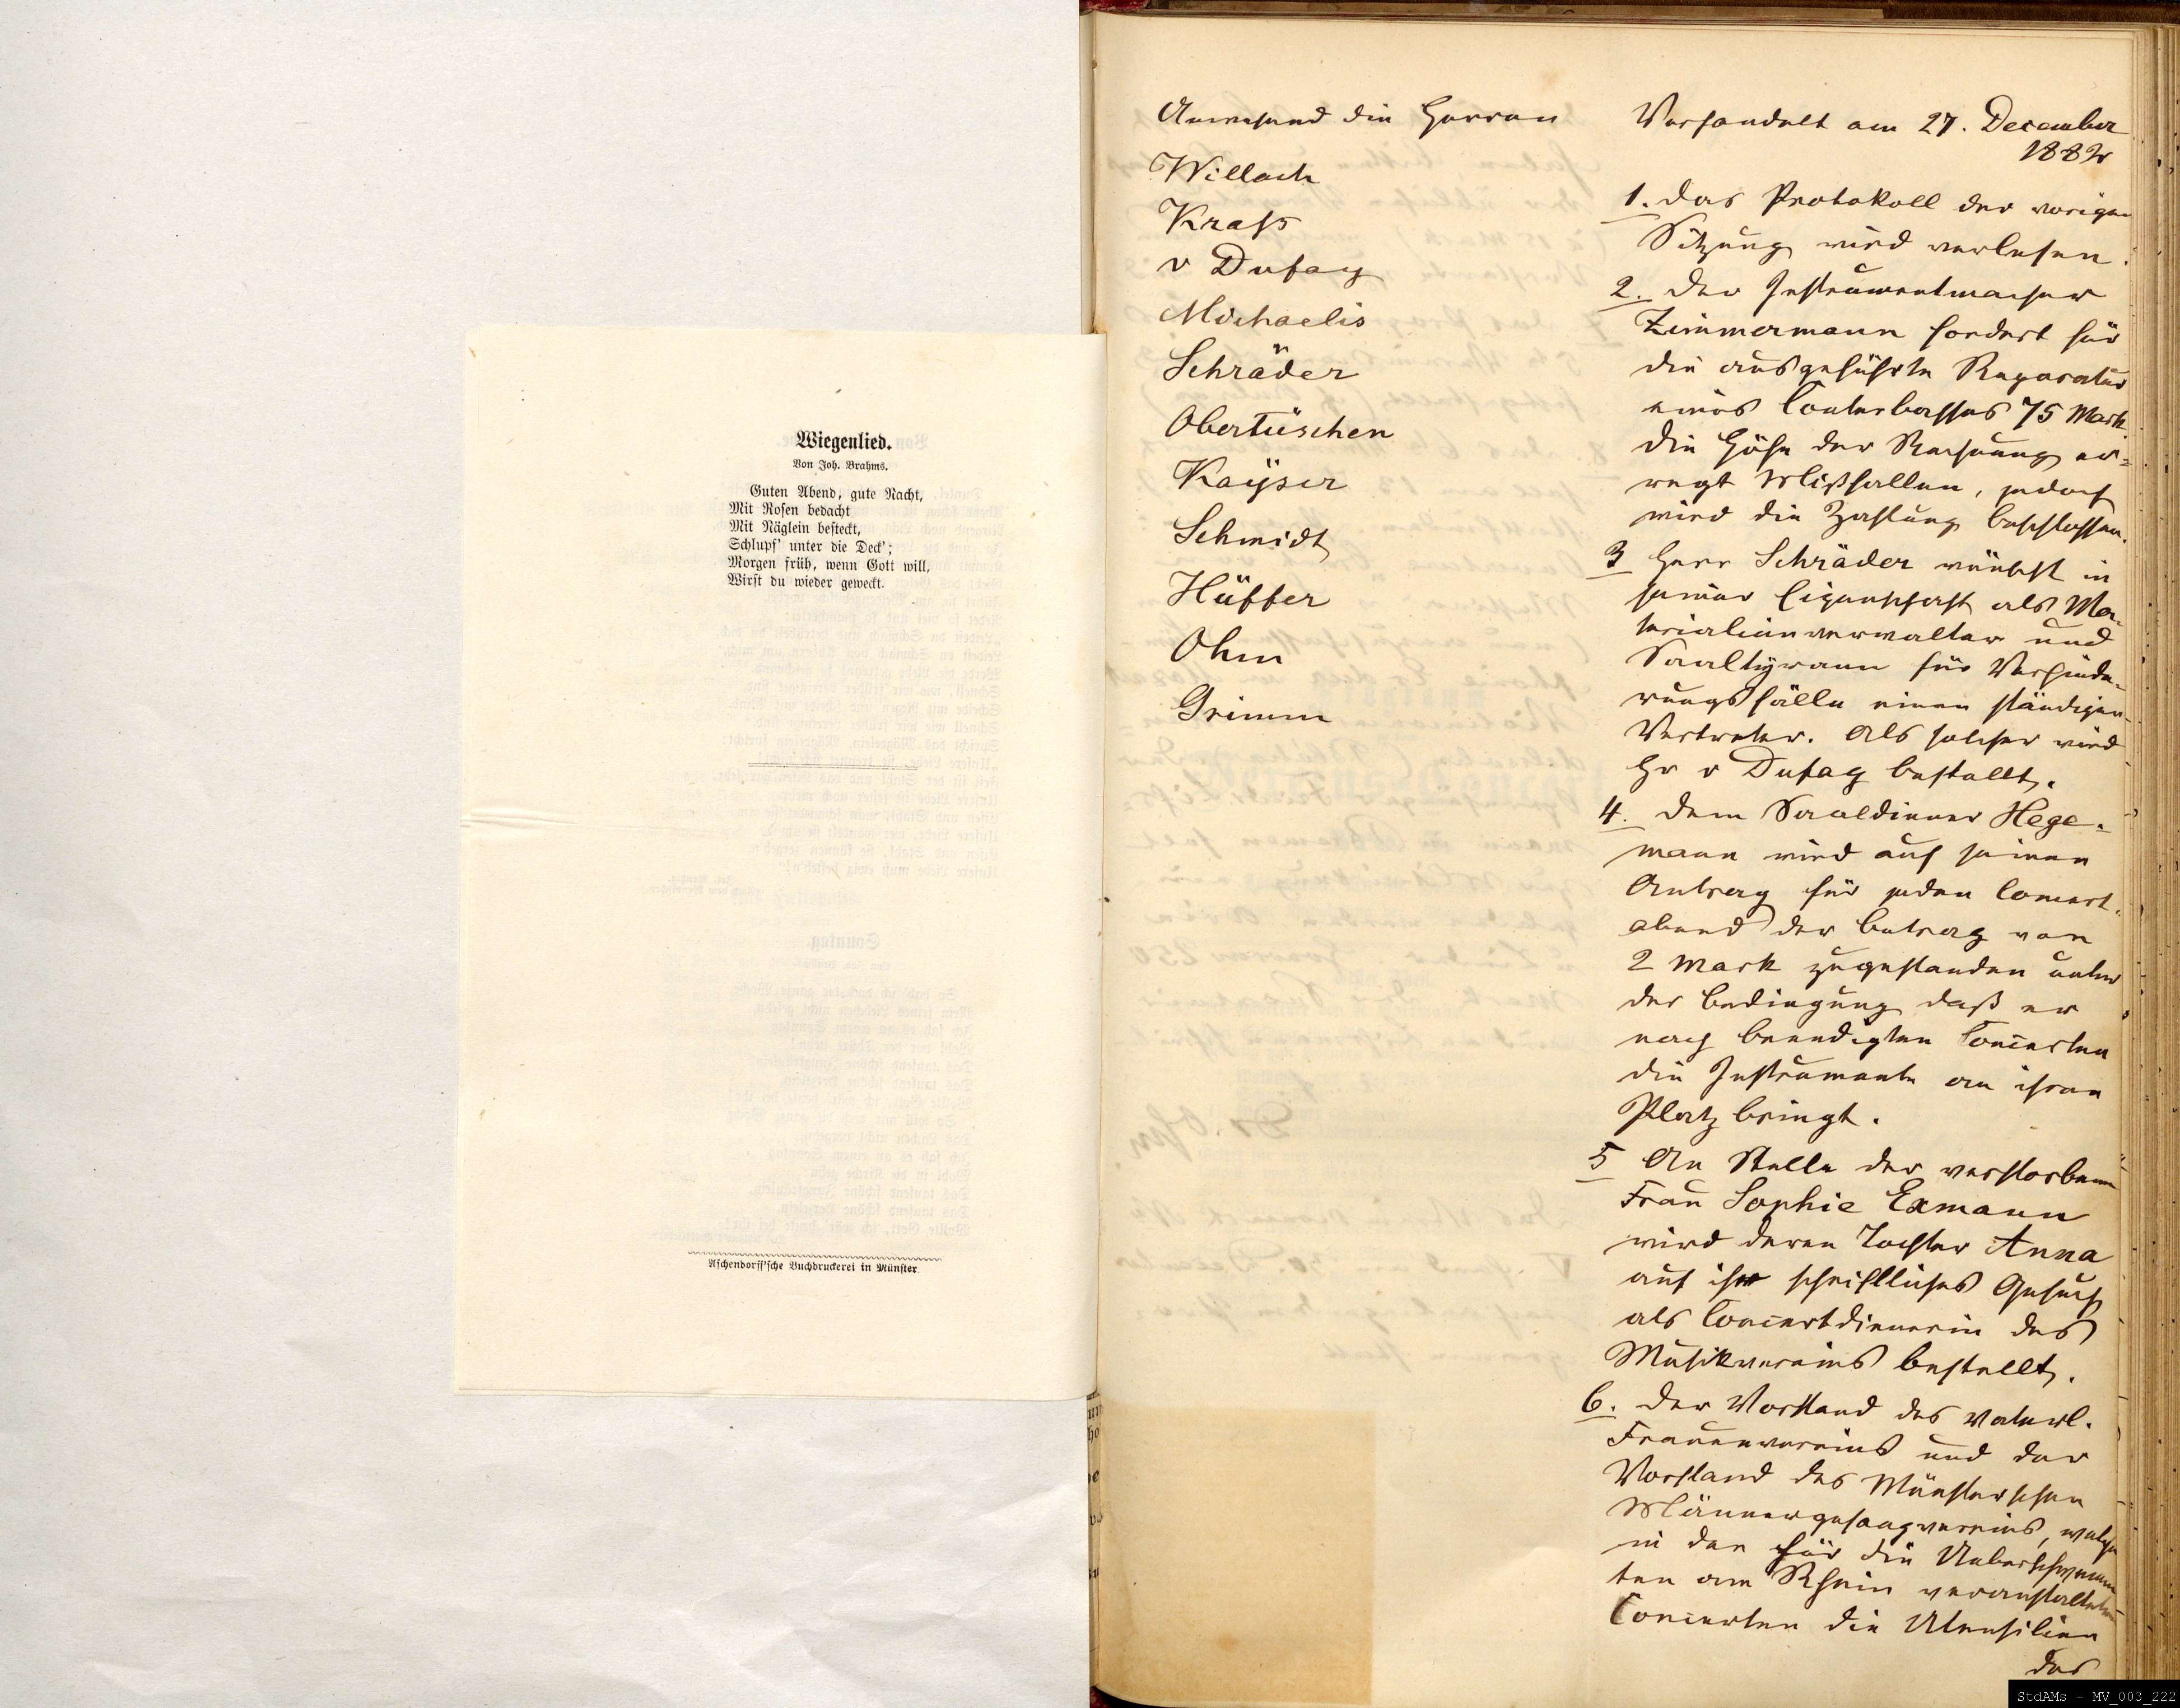 Wiegenlied.
Von Joh. Brahms.
Guten Abend, gute Nacht,
Mit Rosen bedacht
Mit Näglein besteckt,
Schlupf' unter die Deck';
Morgen früh, wenn Gott will,
Wirst du wieder geweckt.
Aschendorff'sche Buchdruckerei in Münster.
Anwesend die Herren
Willach
Krass
v Dufay
Michaelis
Schräder
Obertüschen
Kayser
Schmidt
Hüffer
Ohm
Grimm
Verhandelt am 27. December
1882
1. Das Protokoll der vorigen
Sitzung wird verlesen.
2. Der Instrumentmacher
Zimmermann fordert für
die ausgeführte Reparatur
eines Contrebasses 75 Mark
Die Höhe der Rechnung er-
regt Mißfallen, jedoch
wird die Zahlung beschlossen.
3 Herr Schräder wünscht in
seiner Eigenschaft als Ma-
terialienverwalter und
Saaltyrann für Verhinde-
rungsfälle einen ständigen
Vertreter. Als solcher wird
Hr v Dufay bestellt.
4. Dem Saaldiener Hege-
mann wird auf seinen
Antrag für jeden Concert-
abend der Betrag von
2 Mark zugestanden unter
der Bedingung daß er
nach beendigten Concerten
die Instrumente an ihren
Platz bringt.
5 An Stelle der verstorbenen
Frau Sophie Exmann
wird deren Tochter Anna
auf ihr schriftliches Gesuch
als Concertdienerin des
Musikvereins bestellt.
6. Der Vorstand des Vaterl.
Frauenvereins und der
Vorstand des Münsterschen
Männergesangvereins, welche
in den für die Ueberschwemm
ten am Rhein veranstalteten
Concerten die Utensilien
des
StdAMs - MV_003_222